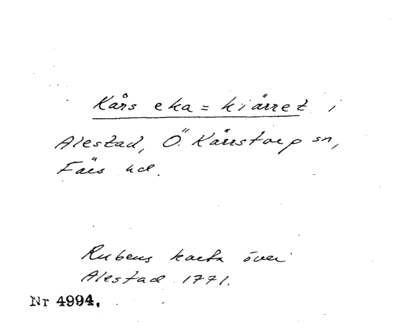 Kårs eka = kiärret i
Alestad, Ö. Kärrstorp sn,
Färs hd.
Rubens karta över
Alestad 1771.
Nr 4994.